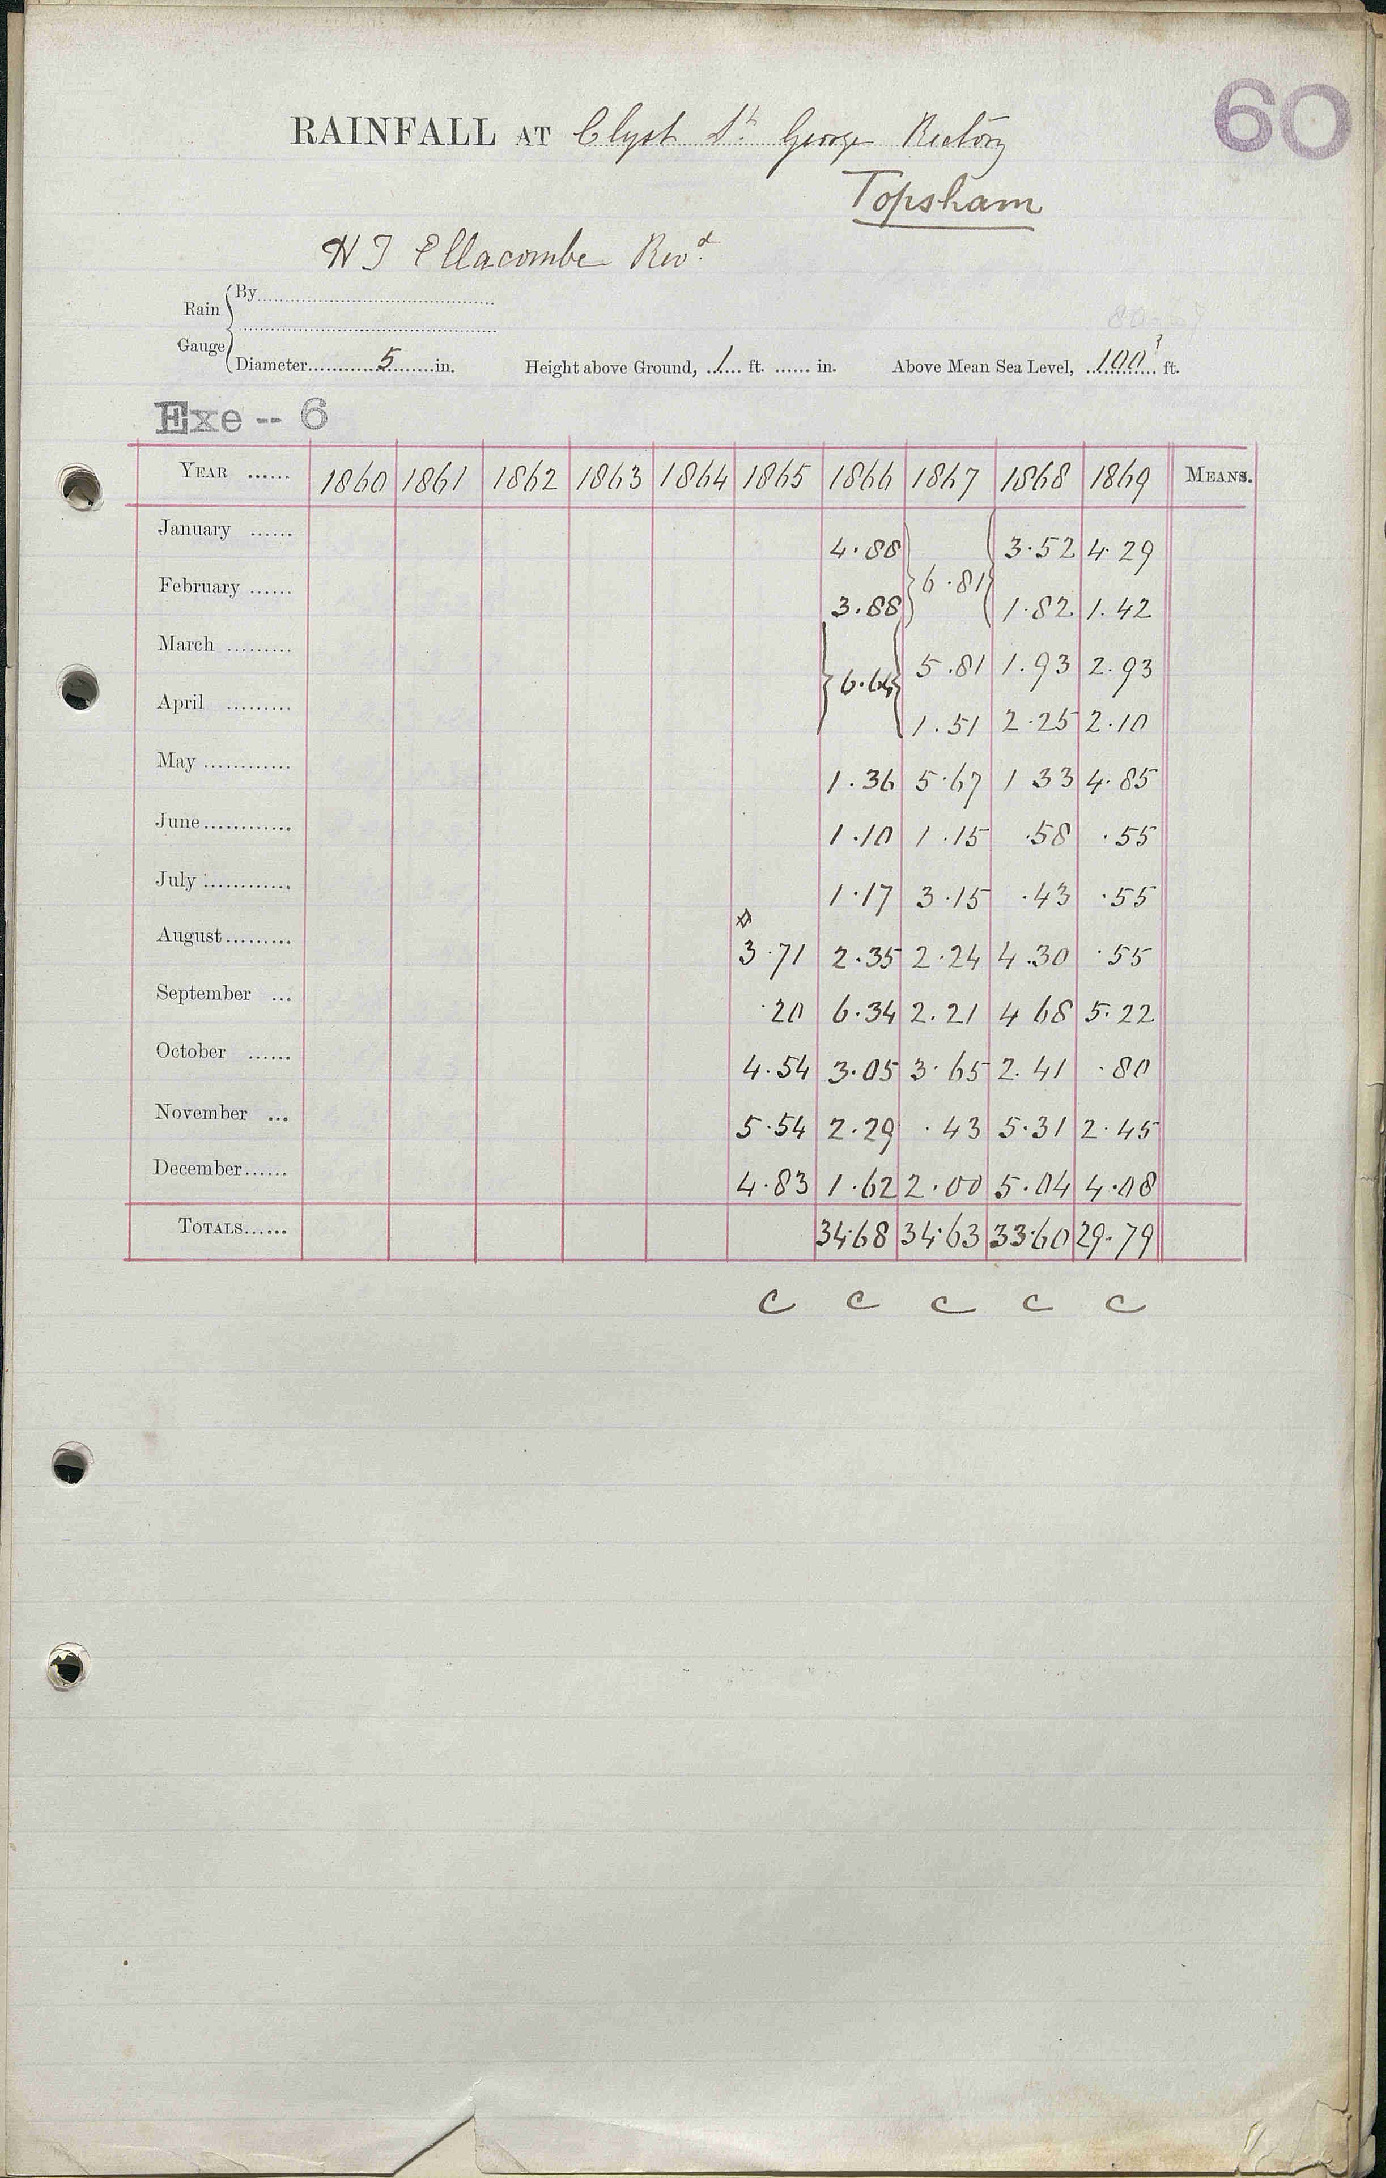 60
RAINFALL AT Clyst St. George Rectory
Topsham
H T Ellacombe Revd.
Rain Gauge { By
Diameter 5 in. Height above Ground, 1 ft. in. Above Mean Sea Level, 100? ft.
Exe -- 6
YEAR 1860 1861 1862 1863 1864 1865 1866 1867 1868 1869 MEANS.
January 4.88 3.52 4.29
February 3.88 6.81 1.82 1.42
March 5.81 1.93 2.93
April 6.64 1.51 2.25 2.10
May 1.36 5.67 1 33 4.85
June 1.10 1.15 .58 .55
July 1.17 3.15 .43 .55
August 3.71 2.35 2.24 4.30 .55
September .20 6.34 2.21 4 68 5.22
October 4.54 3.05 3.65 2.41 .80
November 5.54 2.29 .43 5.31 2.45
December 4.83 1.62 2.00 5.04 4.08
TOTALS 34.68 34.63 33.60 29.79
c c c c c